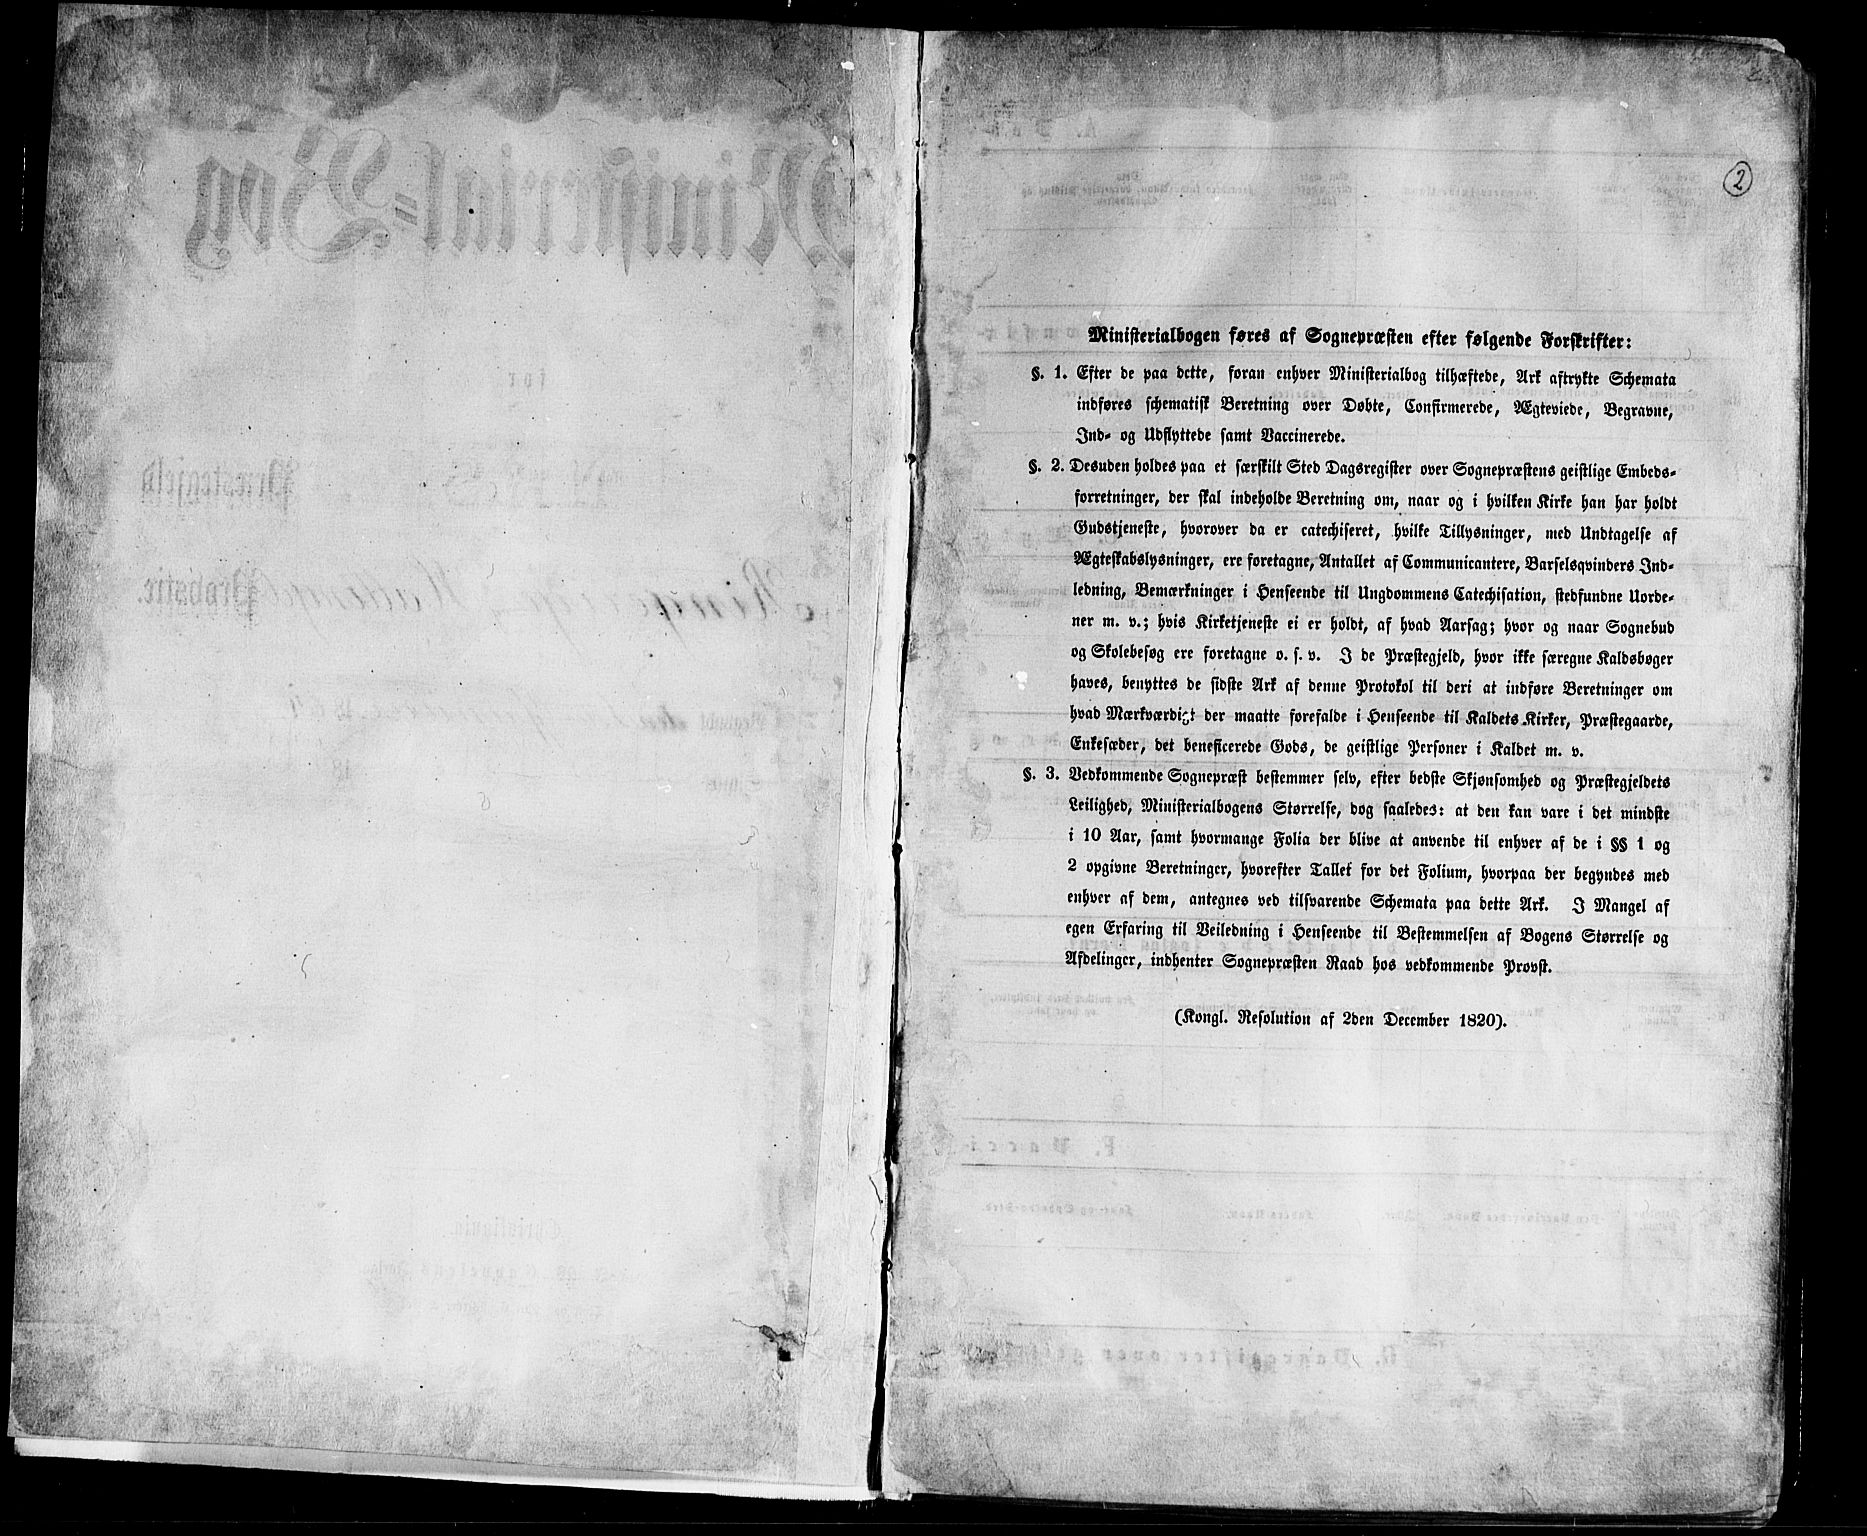 2
Ministerialbogen føres af Sognepræsten efter følgende Forskrifter:
§. 1. Efter de paa dette, foran enhver Ministerialbog tilhæftede, Ark aftrykte Schemata
indføres schematisk Beretning over Døbte, Confirmerede, Ægteviede, Begravne,
Ind- og Udflyttede samt Vaccinerede.
§. 2. Desuden holdes paa et særskilt Sted Dagsregister over Sognepræstens geistlige Embeds-
forretninger, der skal indeholde Beretning om, naar og i hvilken Kirke han har holdt
Gudstjeneste, hvorover da er catechiseret, hvilke Tillysninger, med Undtagelse af
Ægteskabslysninger, ere foretagne, Antallet af Communicantere, Barselsqvinders Ind-
ledning, Bemærkninger i Henseende til Ungdommens Catechisation, stedfundne Uorde-
ner m. v.; hvis Kirketjeneste ei er holdt, af hvad Aarsag; hvor og naar Sognebud
og Skolebesøg ere foretagne o. s. v. I de Præstegjeld, hvor ikke særegne Kaldsbøger
haves, benyttes de sidste Ark af denne Protokol til deri at indføre Beretninger om
hvad Mærkværdigt der maatte forefalde i Henseende til Kaldets Kirker, Præstegaarde,
Enkesæder, det beneficerede Gods, de geistlige Personer i Kaldet m. v.
§. 3. Vedkommende Sognepræst bestemmer selv, efter bedste Skjønsomhed og Præstegjeldets
Leilighed, Ministerialbogens Størrelse, dog saaledes: at den kan vare i det mindste
i 10 Aar, samt hvormange Folia der blive at anvende til enhver af de i §§ 1 og
2 opgivne Beretninger, hvorefter Tallet for det Folium, hvorpaa der begyndes med
enhver af dem, antegnes ved tilsvarende Schemata paa dette Ark. I Mangel af
egen Erfaring til Veiledning i Henseende til Bestemmelsen af Bogens Størrelse og
Afdelinger, indhenter Sognepræsten Raad hos vedkommende Provst.
(Kongl. Resolution af 2den December 1820).